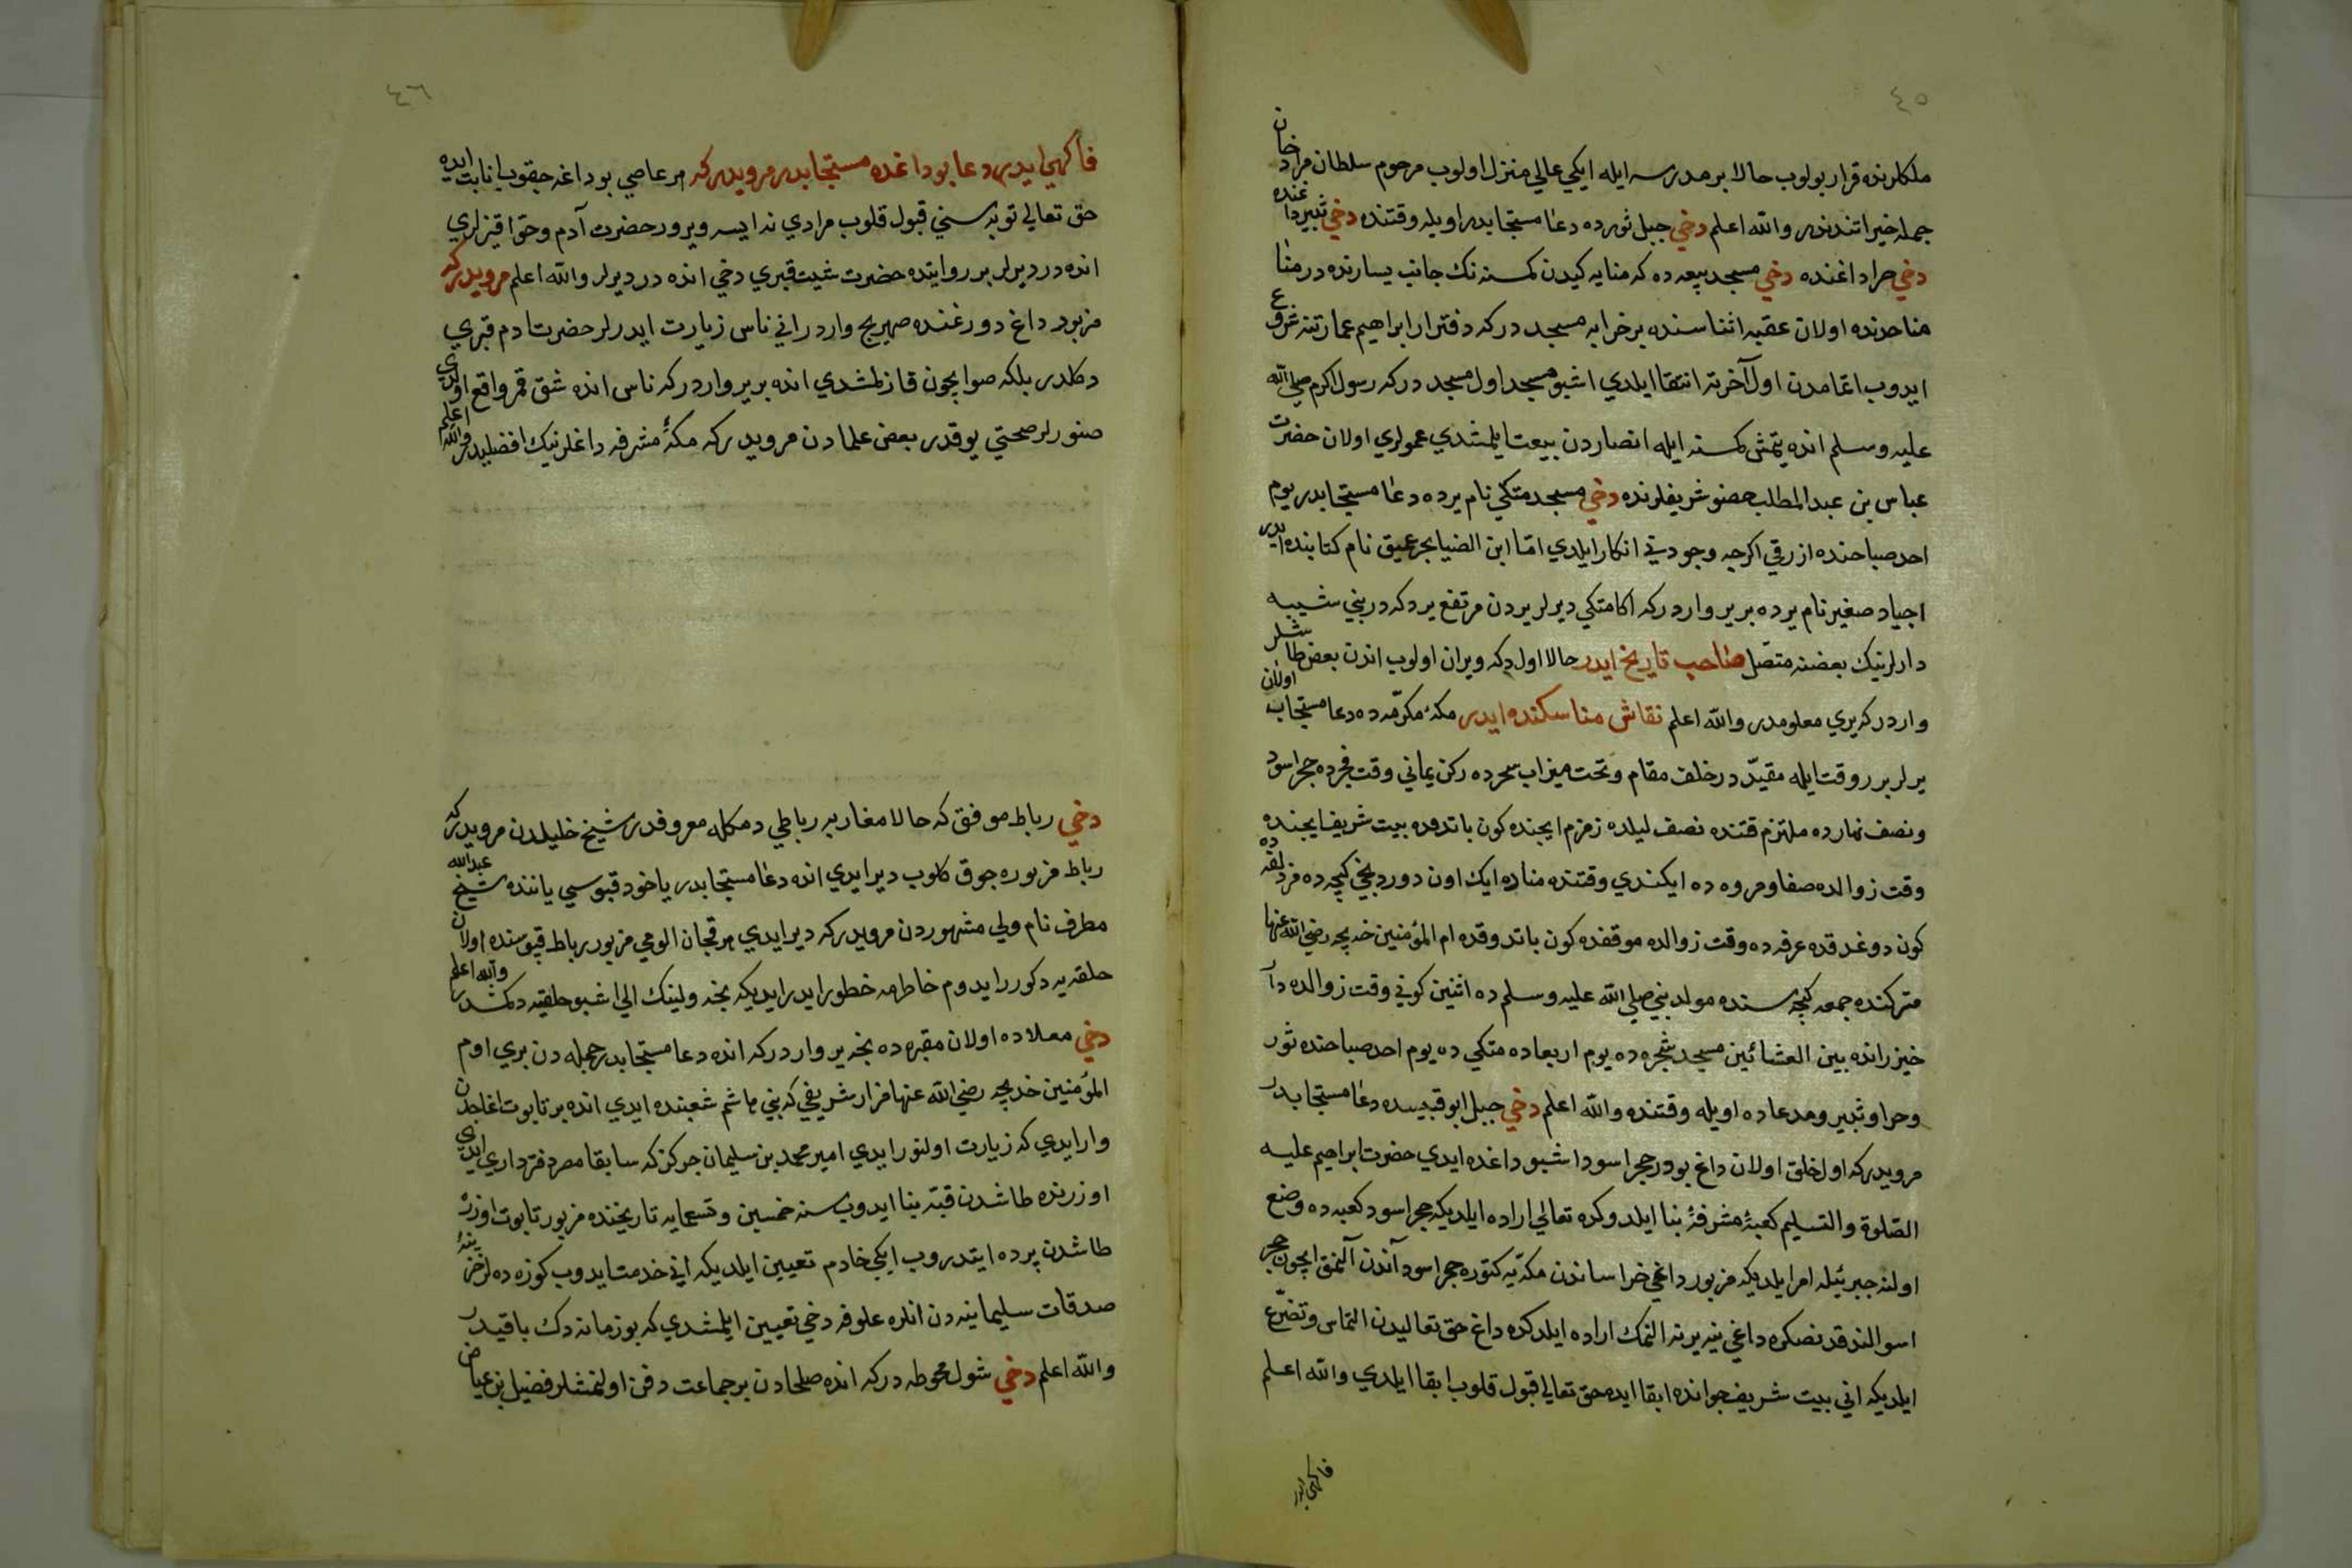 ٤٥
ملكلرنده قرار بولوب حالا بر مدرسه ايله ايكي عالي منزل اولوب مرحوم سلطان مراد خان
جمله خيراتندندر والله اعلم دخي جبل ثورده دعا مستجابدر اويله وقتنده دخي ثبير داغنده
دخي حرا داغنده دخي مسجد بيعه ده كه منايه كيدن كمسنه نك جانب يسارنده در منا
مناحدنده اولان عقبه اثناسنده بر خرابه مسجد در كه دفتردار ابراهيم عمارتنه شروع
ايدوب اتمامدن اول آخرته انتقا ايلدي اشبو مسجد اول مسجد در كه رسول اكرم صلي الله
عليه وسلم انده يتمش كمسنه ايله انصاردن بيعت ايلمشدي عمولري اولان حضرت
عباس بن عبد المطلب حضو شريفلرنده دخي مسجد متكي نام يرده دعا مستجابدر يوم
احد صباحنده ازرقي اكرجه وجوديني انكار ايلدي اما ابن الضيا بحر عميق نام كتابنده ايدر
اجياد صغير نام يرده بر ير واردر كه اكا متكي ديرلر يردن مرتفع يردكه در بني شيبه
دارلرينك بعضنه متصل صاحب تاريخ ايدر حالا اول دكه ويران اولوب اندن بعض طاشلر
واردر كه يري معلومدر والله اعلم نقاش مناسكنده ايدر مكهٔ مكرّمه ده دعا مستجاب اولان
يرلر بر وقت ايله مقيدّ در خلف مقام وتحت ميزاب سحرده ركن يماني وقت فجرده حجر اسود
ونصف نهارده ملتزم قتنده نصف ليلده زمزم ايجنده كون باتدوقده بيت شريف ايجنده
وقت زوالده صفا ومروه ده ايكندي وقتنده مناده ايك اون دوردنجي كيجه ده مزدلفه ده
كون دوغدقده عرفه ده وقت زوالده موقفده كون باتدوقده ام المؤمنين خديجه رضي الله عنها
متركنده جمعه كيجه سنده مولد نبي صلي الله عليه وسلم ده اثنين كوني وقت زوالده دار
خيزرانده بين العشائين مسجد شجره ده يوم اربعاده متكي ده يوم احد صباحنده ثور
وحرا وثبير ومدعاده اويله وقتنده والله اعلم دخي جبل ابو قبيسده دعا مستجابدر
مرويدر كه اول خلق اولان داغ بودر حجر اسود اشبو داغده ايدي حضرت ابراهيم عليه
الصّلوة والتسليم كعبهٔ مشرفهٔ بنا ايلدوكده تعالي اراده ايلديكه حجر اسود كعبه ده وضع
اولنه جبرئيله امر ايلديكه مزبور داغي خراساندن مكه يه كتوره حجر اسود آندن آلنمق ايچون حجر
اسود الندقدنصكره داغي ينه يرنه التمك اراده ايلدكده داغ حق تعاليدن التماس وتضرّع
ايلديكه اني بيت شريف جوانده ابقا ايده حق تعالي قبول قلوب ابقا ايلدي والله اعلم
فاكهي ايدر
٤٦
فاكهي ايدر دعا بو داغده مستجابدر مرويدر كه هر عاصي بو داغه جقوب انابت ايده
حق تعالي توبه سني قبول قلوب مرادي ندا ايسه ويرور حضرت آدم وحوا قبرلري
انده در ديرلر بر روايتده حضرت شيت قبري دخي انده در ديرلر والله اعلم مرويدر كه
مزبور داغ دورغنده صهريج واردر اني ناس زيارت ايدرلر حضرت ادم قبري
دكلدر بلكه صو ايچون قازلمشدي انده بر ير واردر كه ناس انده شق قمر واقع اولدي
صنورلر صحتي يوقدر بعض علمادن مرويدر كه مكهٔ مشرفه داغلرنيك افضليدر والله اعلم
دخي رباط موفق كه حالا مغاربه رباطي دمكله معروفدر شيخ خليلدن مرويدر كه
رباط مزبوره جوق كلوب دير ايدي انده دعا مستجابدر ياخود قپوسي ياننده شيخ عبد الله
مطرف نام ولي مشهوردن مرويدر كه دير ايدي هر قجان الومي مزبور رباط قپوسنده اولان
حلقه يه دكورر ايدوم خاطرمه خطور ايدر ايديكه نجه ولينك الي اشبو حلقيه دكمشدر والله اعلم
دخي معلاده اولان مقبره ده نجه ير واردر كه انده دعا مستجابدر جمله دن بري اوم
المؤمنين خديجه رضي الله عنها مزار شريفي كه بني هاشم شعبنده ايدي انده بر تابوت اغاجدن
وار ايدي كه زيارت اولنور ايدي امير محمد بن سليمان جركز كه سابقا مصر دفترداري ايدي
اوزرنده طاشدن قبّه بنا ايدوب سنه خمسين وتسعمايه تاريخنده مزبور تابوت اوزرنه
طاشدن پرده ايتدروب ايكي خادم تعيين ايلديكه اني خدمت ايدوب كوزه ده لر خزينهٔ
صدقات سليمانيه دن انلره علوفه دخي تعيين ايلمشدي كه بو زمانه دك باقيدر
والله اعلم دخي شول محوطه در كه انده صلحادن بر جماعت دفن اولنمشلر فضيل بن عياض